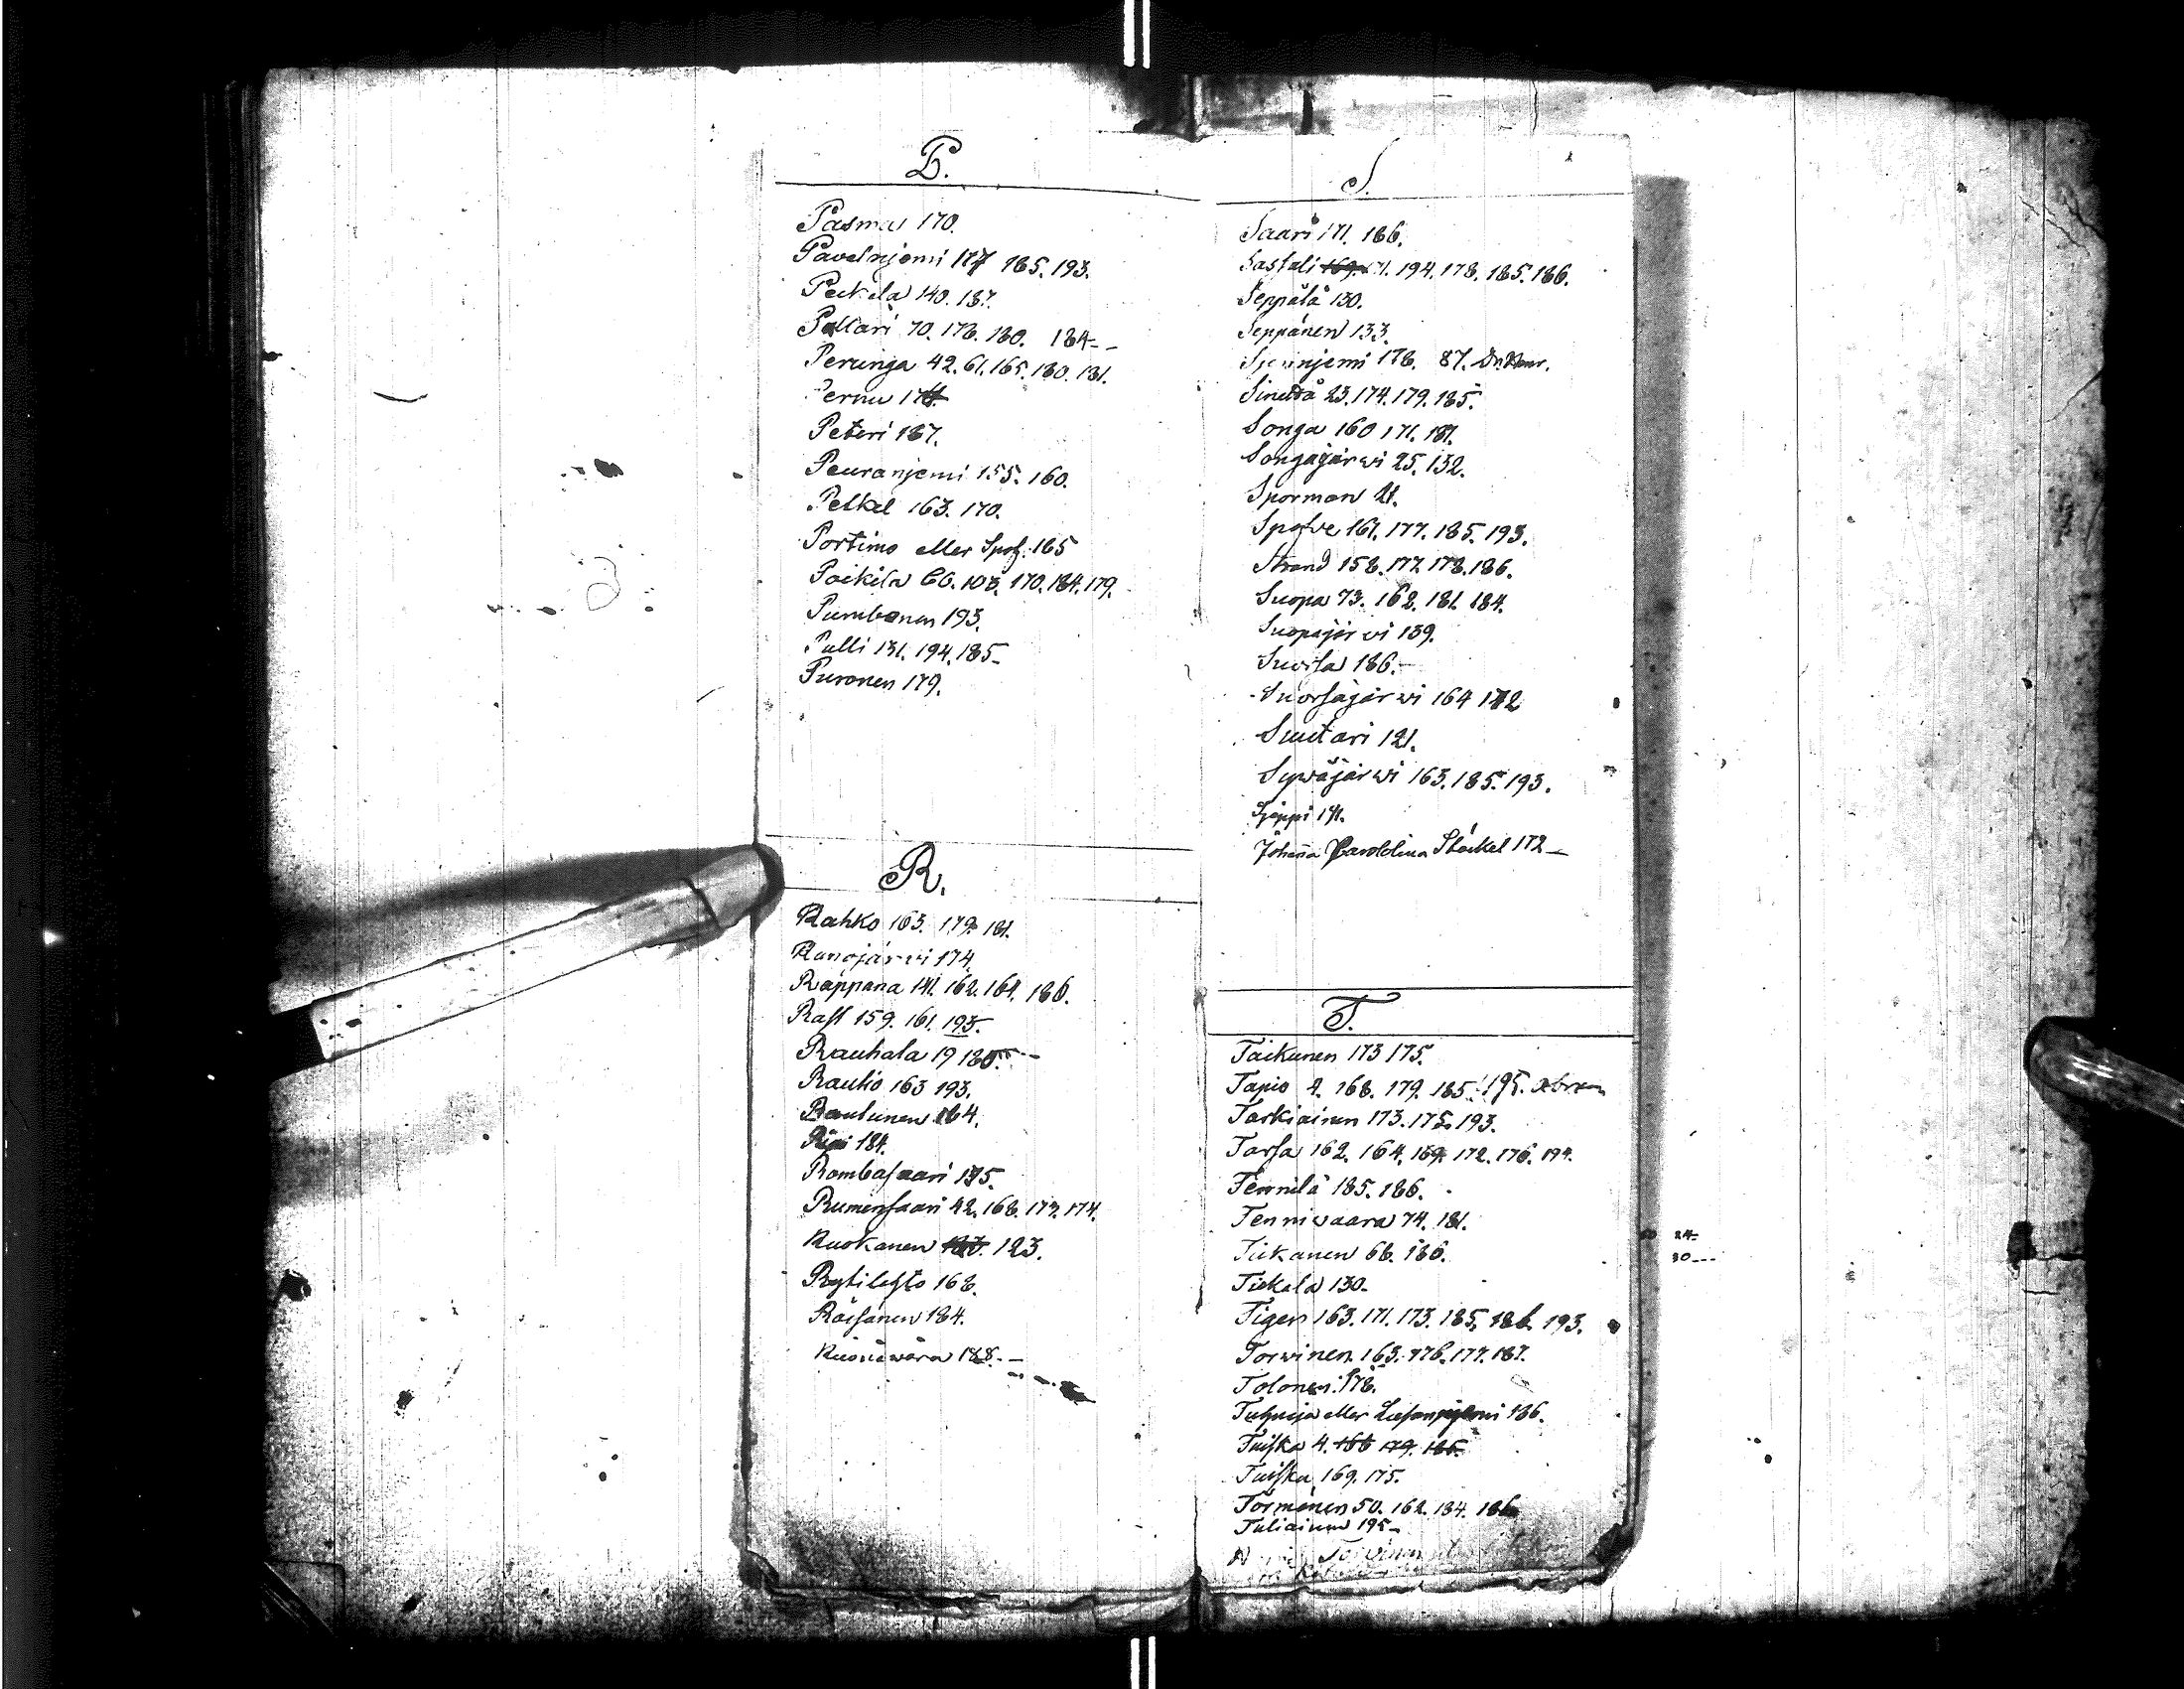 P.
Pasma 170.
Pavelnjemi 177 185. 193.
Peckela 140. 187.
Pallari 70. 178. 180. 184--
Perunga 42. 61. 165. 180. 181.
Pernu
Peteri 187.
Peuranjemi 155. 160.
Petkel 163. 170.
Portimo eller 165
Poikila 66. 103. 170. 184. 179.
Pumbanen 193.
Pulli 131. 194. 185-
Puronen 179.
R.
Rahko 163. 179. 181.
Ranojärvi 174.
Rappana 141. 162. 164. 186.
Rast 159. 161. 193.
Rauhala 19 185.--
Rautio 163 193.
Rautunen 164.
184.
Rombasaari 195.
Rumensaari 42. 168. 173. 174.
Ruokanen 123.
Rytilehto 168.
Räisänen 184.
188.-
S.
Saari 171. 186.
Sastali 194. 178. 185. 186.
Seppälä 130.
Seppänen 133.
178. 87.
Sinettä 23. 174. 179. 185.
Songa 160 171. 187.
Songajärwi 25. 132.
Sporman 21.
Spolve 161. 177. 185. 193.
Strand 158. 177. 178. 186.
Suopa 73. 162. 181. 184.
Suopajärwi 139.
Suvila 186.-
Suorsajärwi 164 172
Suutari 121.
Sywäjärwi 163. 185. 193.
Sjeppi 141.
Johana Carolina Stöckel 172-
T.
Taikunen 173 175.
Tapio 4. 168. 179. 185. 195. Abram
Tarkiainen 173. 175. 193.
Tarsa 162. 164. 169. 172. 176. 194.
Tennilä 185. 186.
Tenniwaara 74. 181.
Tiikanen 68. 186.
Tiekala 130-
Tigen 163. 171. 173. 185. 186. 193.
Torwinen 163. 176. 177. 187.
Tolonen 178.
eller 186.
Tuiska 4. 168 179. 186.
Tuisku 169. 175.
Törmänen 50. 162. 184. 186
Tuliainen 195-
24-
30---